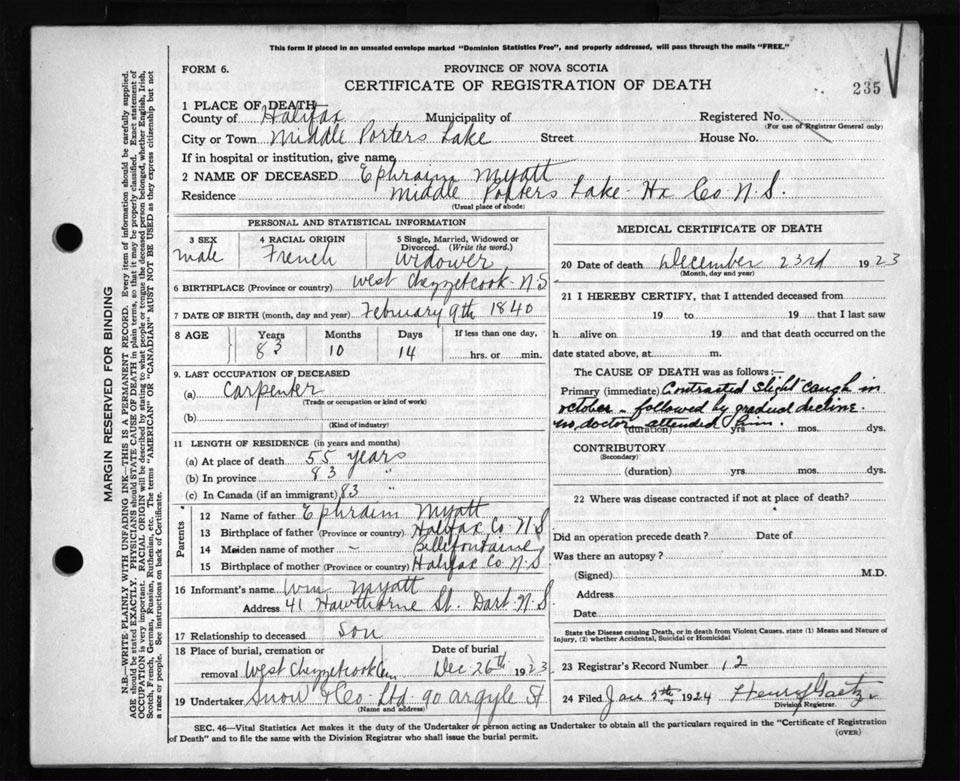 This form if placed in an unsealed envelope marked "Dominion Statistics Free", and properly addressed, will pass through the mails "FREE."
FORM 6.
PROVINCE OF NOVA SCOTIA
CERTIFICATE OF REGISTRATION OF DEATH
235
1 PLACE OF DEATH
County of Halifax Municipality of Registered No.
(For use of Registrar General only)
City or Town Middle Porters Lake Street House No.
If in hospital or institution, give name
2 NAME OF DECEASED Ephraim Myatt
Residence Middle Porters Lake Hx Co N.S.
(Usual place of abode)
PERSONAL AND STATISTICAL INFORMATION
3 SEX 4 RACIAL ORIGIN 5 Single, Married, Widowed or Divorced. (Write the word.)
Male French Widower
6 BIRTHPLACE (Province or country) West Chezzetcook N.S
7 DATE OF BIRTH (month, day and year) February 9th 1840
8 AGE Years Months Days If less than one day,
83 10 14 hrs. or min.
9. LAST OCCUPATION OF DECEASED
(a) Carpenter
(Trade or occupation or kind of work)
(b)
(Kind of industry)
11 LENGTH OF RESIDENCE (in years and months)
(a) At place of death 55 years
(b) In province 83 "
(c) In Canada (if an immigrant) 83 "
Parents
12 Name of father Ephraim Myatt
13 Birthplace of father (Province or country) Halifax Co N S
14 Maiden name of mother - Bellefontaine
15 Birthplace of mother (Province or country) Halifax Co. N.S
16 Informant's name Wm Myatt
Address 41 Hawthorne St. Dart. N.S
17 Relationship to deceased Son
18 Place of burial, cremation or removal Date of burial
West Chezzetcook Cem Dec 26th 1923
19 Undertaker Snow & Co. Ltd. 90 Argyle St
(Name and address)
MEDICAL CERTIFICATE OF DEATH
20 Date of death December 23rd 1923
(Month, day and year)
21 I HEREBY CERTIFY, that I attended deceased from
19 to 19 that I last saw
h alive on 19 and that death occurred on the
date stated above, at m.
The CAUSE OF DEATH was as follows:—
Primary (immediate) Contracted slight cough in
october - followed by gradual decline.
no doctor attended him.
(duration) yrs. mos. dys.
CONTRIBUTORY
(Secondary)
(duration) yrs. mos. dys.
22 Where was disease contracted if not at place of death?
Did an operation precede death? Date of
Was there an autopsy?
(Signed) M.D.
Address
Date
State the Disease causing Death, or in death from Violent Causes, state (1) Means and Nature of
Injury, (2) whether Accidental, Suicidal or Homicidal
23 Registrar's Record Number 12
24 Filed Jan 5th 1924 Henry Gaetz
Division Registrar.
SEC. 46—Vital Statistics Act makes it the duty of the Undertaker or person acting as Undertaker to obtain all the particulars required in the "Certificate of Registration
of Death" and to file the same with the Division Registrar who shall issue the burial permit.
(OVER)
MARGIN RESERVED FOR BINDING
N.B.—WRITE PLAINLY WITH UNFADING INK—THIS IS A PERMANENT RECORD. Every item of information should be carefully supplied.
AGE should be stated EXACTLY. PHYSICIANS should STATE CAUSE OF DEATH in plain terms, so that it may be properly classified. Exact statement of
OCCUPATION is very important. RACIAL ORIGIN will be described by stating to what people or tongue the deceased person belonged, whether English, Irish,
Scotch, French, German, Russian, Ruthenian, etc. The terms "AMERICAN" OR "CANADIAN" MUST NOT BE USED as they express citizenship but not
a race or people. See instructions on back of Certificate.